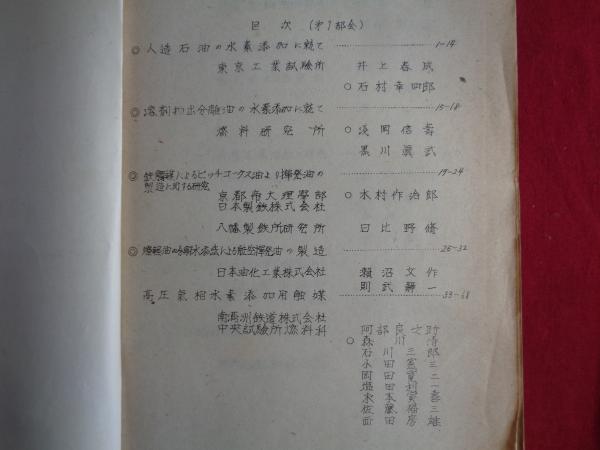 目次（第1部会）
◎人造石油の水素添加に就て 1-14
東京工業試験所 井上春成
○石村幸四郎
◎溶剤抽出分離油の水素添加に就て 15-18
燃料研究所 ○浅岡信壽
黒川眞武
◎鉄触媒によるピッチコークス油より揮発油の 19-24
製造に関する研究
京都帝大理學部 ○木村作治郎
日本製鉄株式会社
八幡製鉄所研究所 日比野脩
揮発油の製造 25-32
日本油化工業株式会社 瀬沼文作
則武静一
高圧氣相水素添加用触媒 33-68
南満洲鉄道株式会社
中央試験所燃料科 阿部良之助
○森川清
石川三郎
永田
岡田寛二
塩田
末本
佐藤
西田房雄